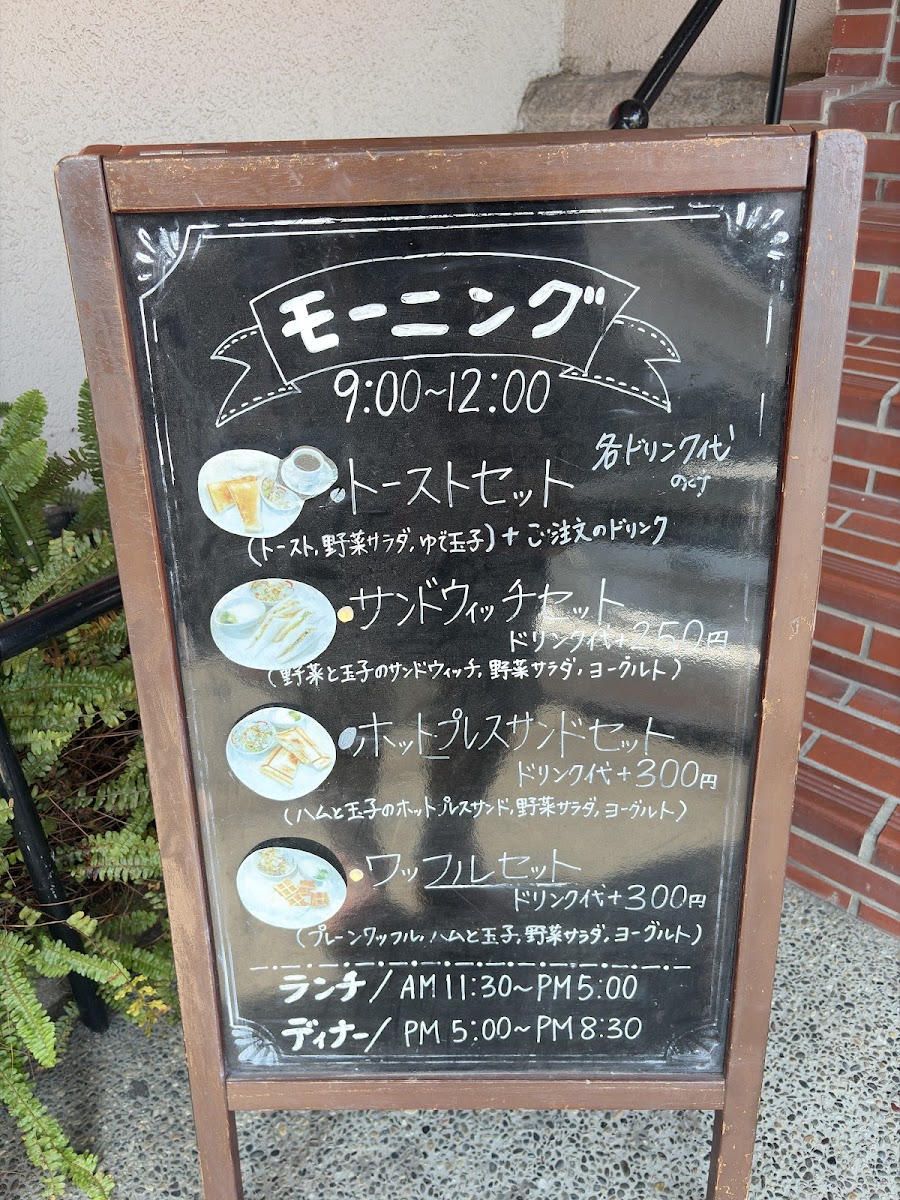 モーニング
9:00~12:00
各ドリンク代
のみ
トーストセット
(トースト,野菜サラダ,ゆで玉子)+ご注文のドリンク
サンドウィッチセット
ドリンク代+250円
(野菜と玉子のサンドウィッチ,野菜サラダ,ヨーグルト)
ホットプレスサンドセット
ドリンク代+300円
(ハムと玉子のホットプレスサンド,野菜サラダ,ヨーグルト)
ワッフルセット
ドリンク代+300円
(プレーンワッフル,ハムと玉子,野菜サラダ,ヨーグルト)
ランチ/AM11:30~PM5:00
ディナー/PM5:00~PM8:30